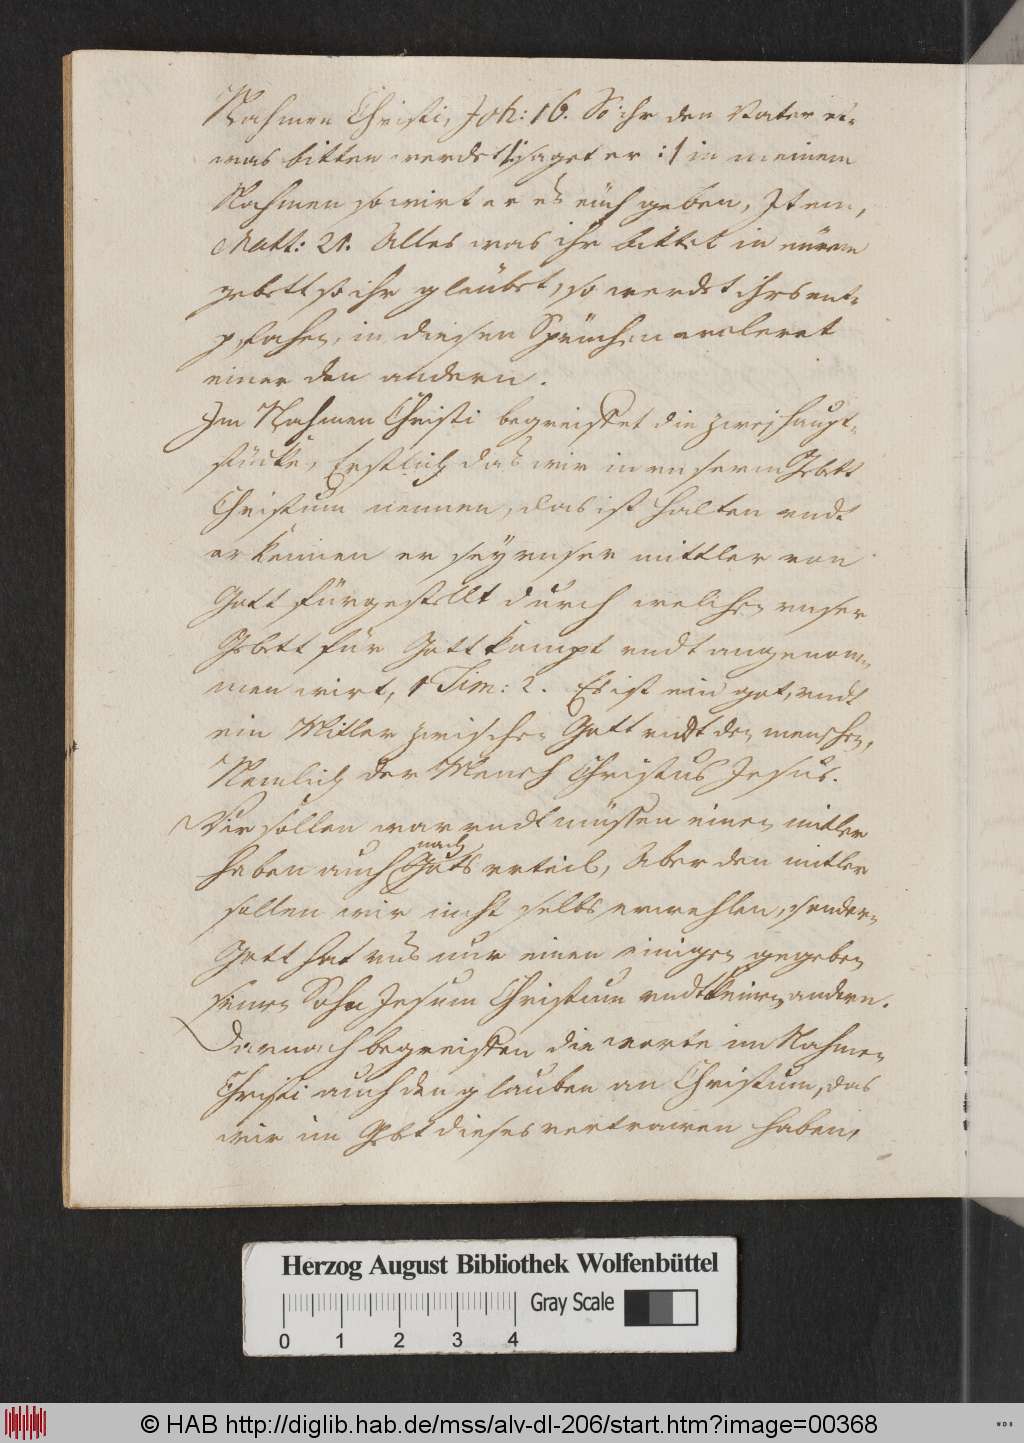 Nahmen Christi, Joh: 16. So ihr den Vater et-
was bitten werdet /: saget er :/ in meinem
Nahmen so wirt er es eüch geben, Item,
Matt: 21. Alles was ihr bittet in eürem
gebett so ihr glaübet, so werdet ihrs ent-
pfahen, in diesen Sprüchen ercleret
einer den andern.
Im Nahmen Christi begreiffet die zwej haupt-
stücke, Erstlich das wir in unserm Gebett
Christum nennen, das ist halten undt
erkennen er sey unser mittler von
Gott fürgestellt durch welchen unser
Gebett für Gott kompt undt angenom-
men wirt, 1 Tim: 2. Es ist ein got, undt
ein Mitler zwischen Gott undt den menschen,
Nemlich der Mensch Christus Jesus.
Wir sollen war undt müssen einen mitler
haben auch nach Gots urteil, Aber den mitler
sollen wir nicht selbs erwehlen, sondern
Gott hat uns nur einen einigen gegeben
seinen Sohn Jesum Christum undt keinen andern.
Darnach begreiffen die worte im Nahmen
Christi auch den glauben an Christum, das
wir im Gebt dieses vertrawen haben,
Herzog August Bibliothek Wolfenbüttel
Gray Scale
0 1 2 3 4
© HAB http://diglib.hab.de/mss/alv-dl-206/start.htm?image=00368